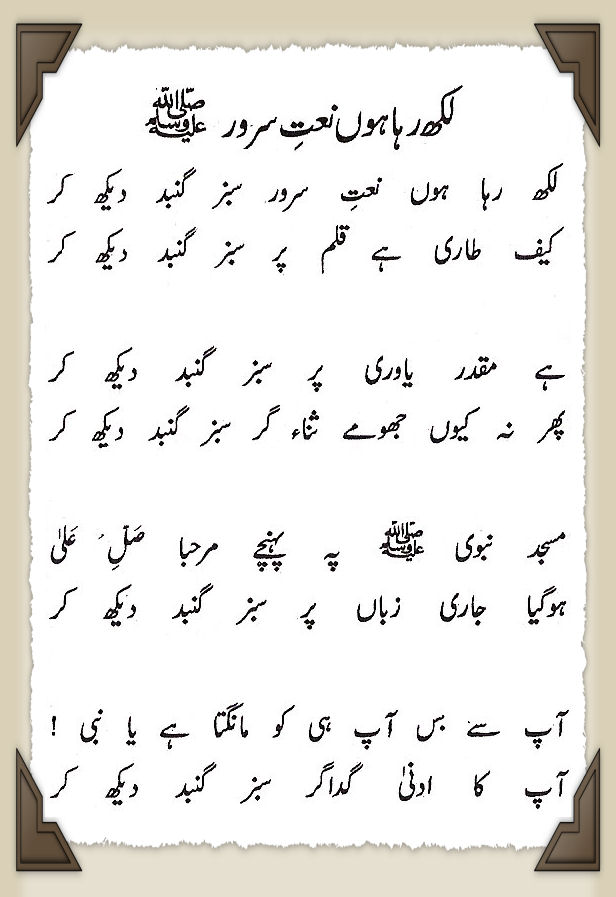 لکھ رہا ہوں نعتِ سرور ﷺ
لکھ رہا ہوں نعتِ سرور سبز گنبد دیکھ کر
کیف طاری ہے قلم پر سبز گنبد دیکھ کر
ہے مقدر یاوری پر سبز گنبد دیکھ کر
پھر نہ کیوں جھومے ثناء گر سبز گنبد دیکھ کر
مسجد نبوی ﷺ پہ پہنچے مرحبا صَلِّ عَلیٰ
ہوگیا جاری زباں پر سبز گنبد دیکھ کر
آپ سے بس آپ ہی کو مانگتا ہے یا نبی !
آپ کا ادنیٰ گداگر سبز گنبد دیکھ کر